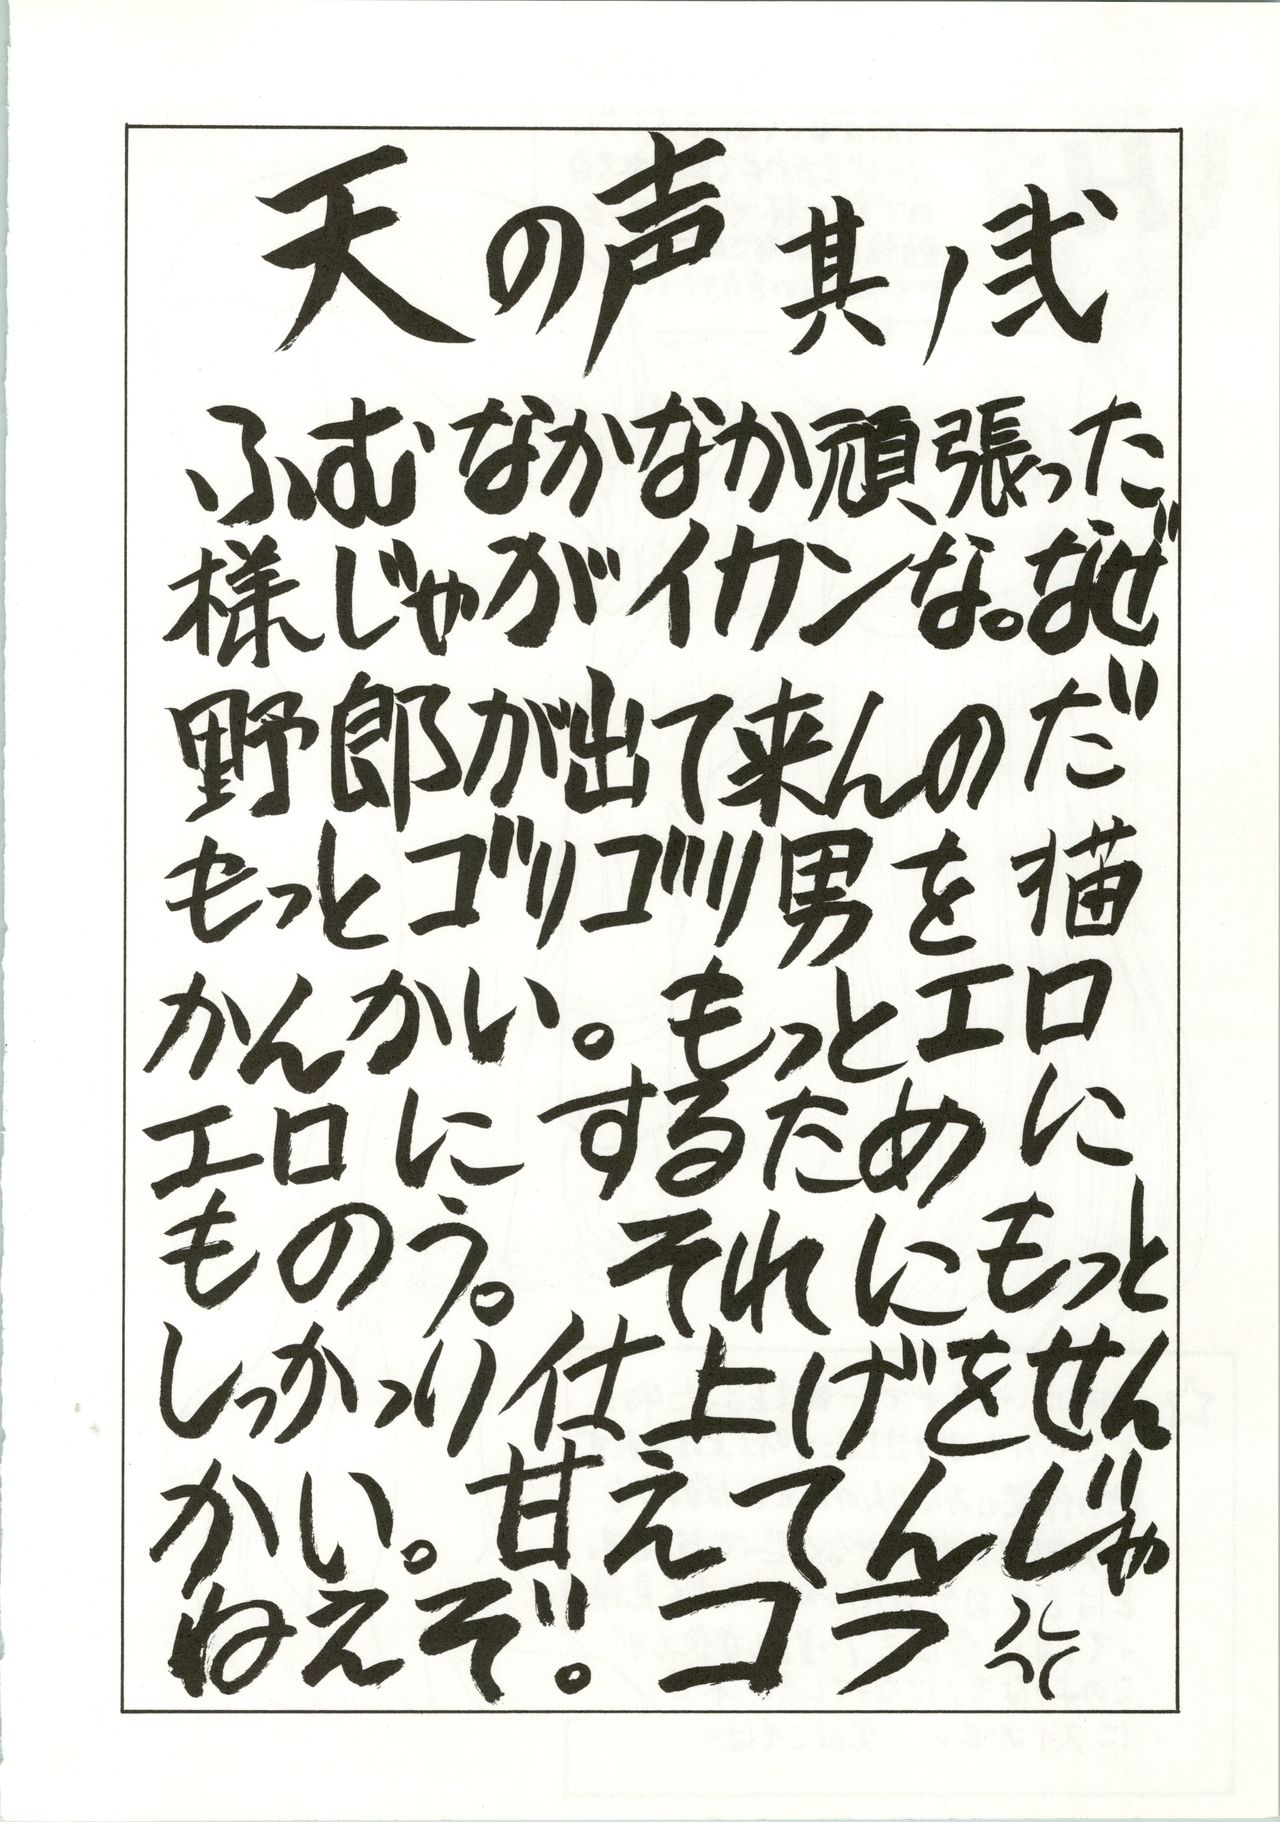 天の声 其ノ弐
ふむなかなか頑張った
様じゃがイカンな。なぜ
野郎が出て来んのだ
もっとゴリゴリ男を猫
かんかい。もっとエロ
エロにするために
ものう。それにもっと
しっかり仕上げをせん
かい。甘えてんじゃ
ねえぞ。コラ